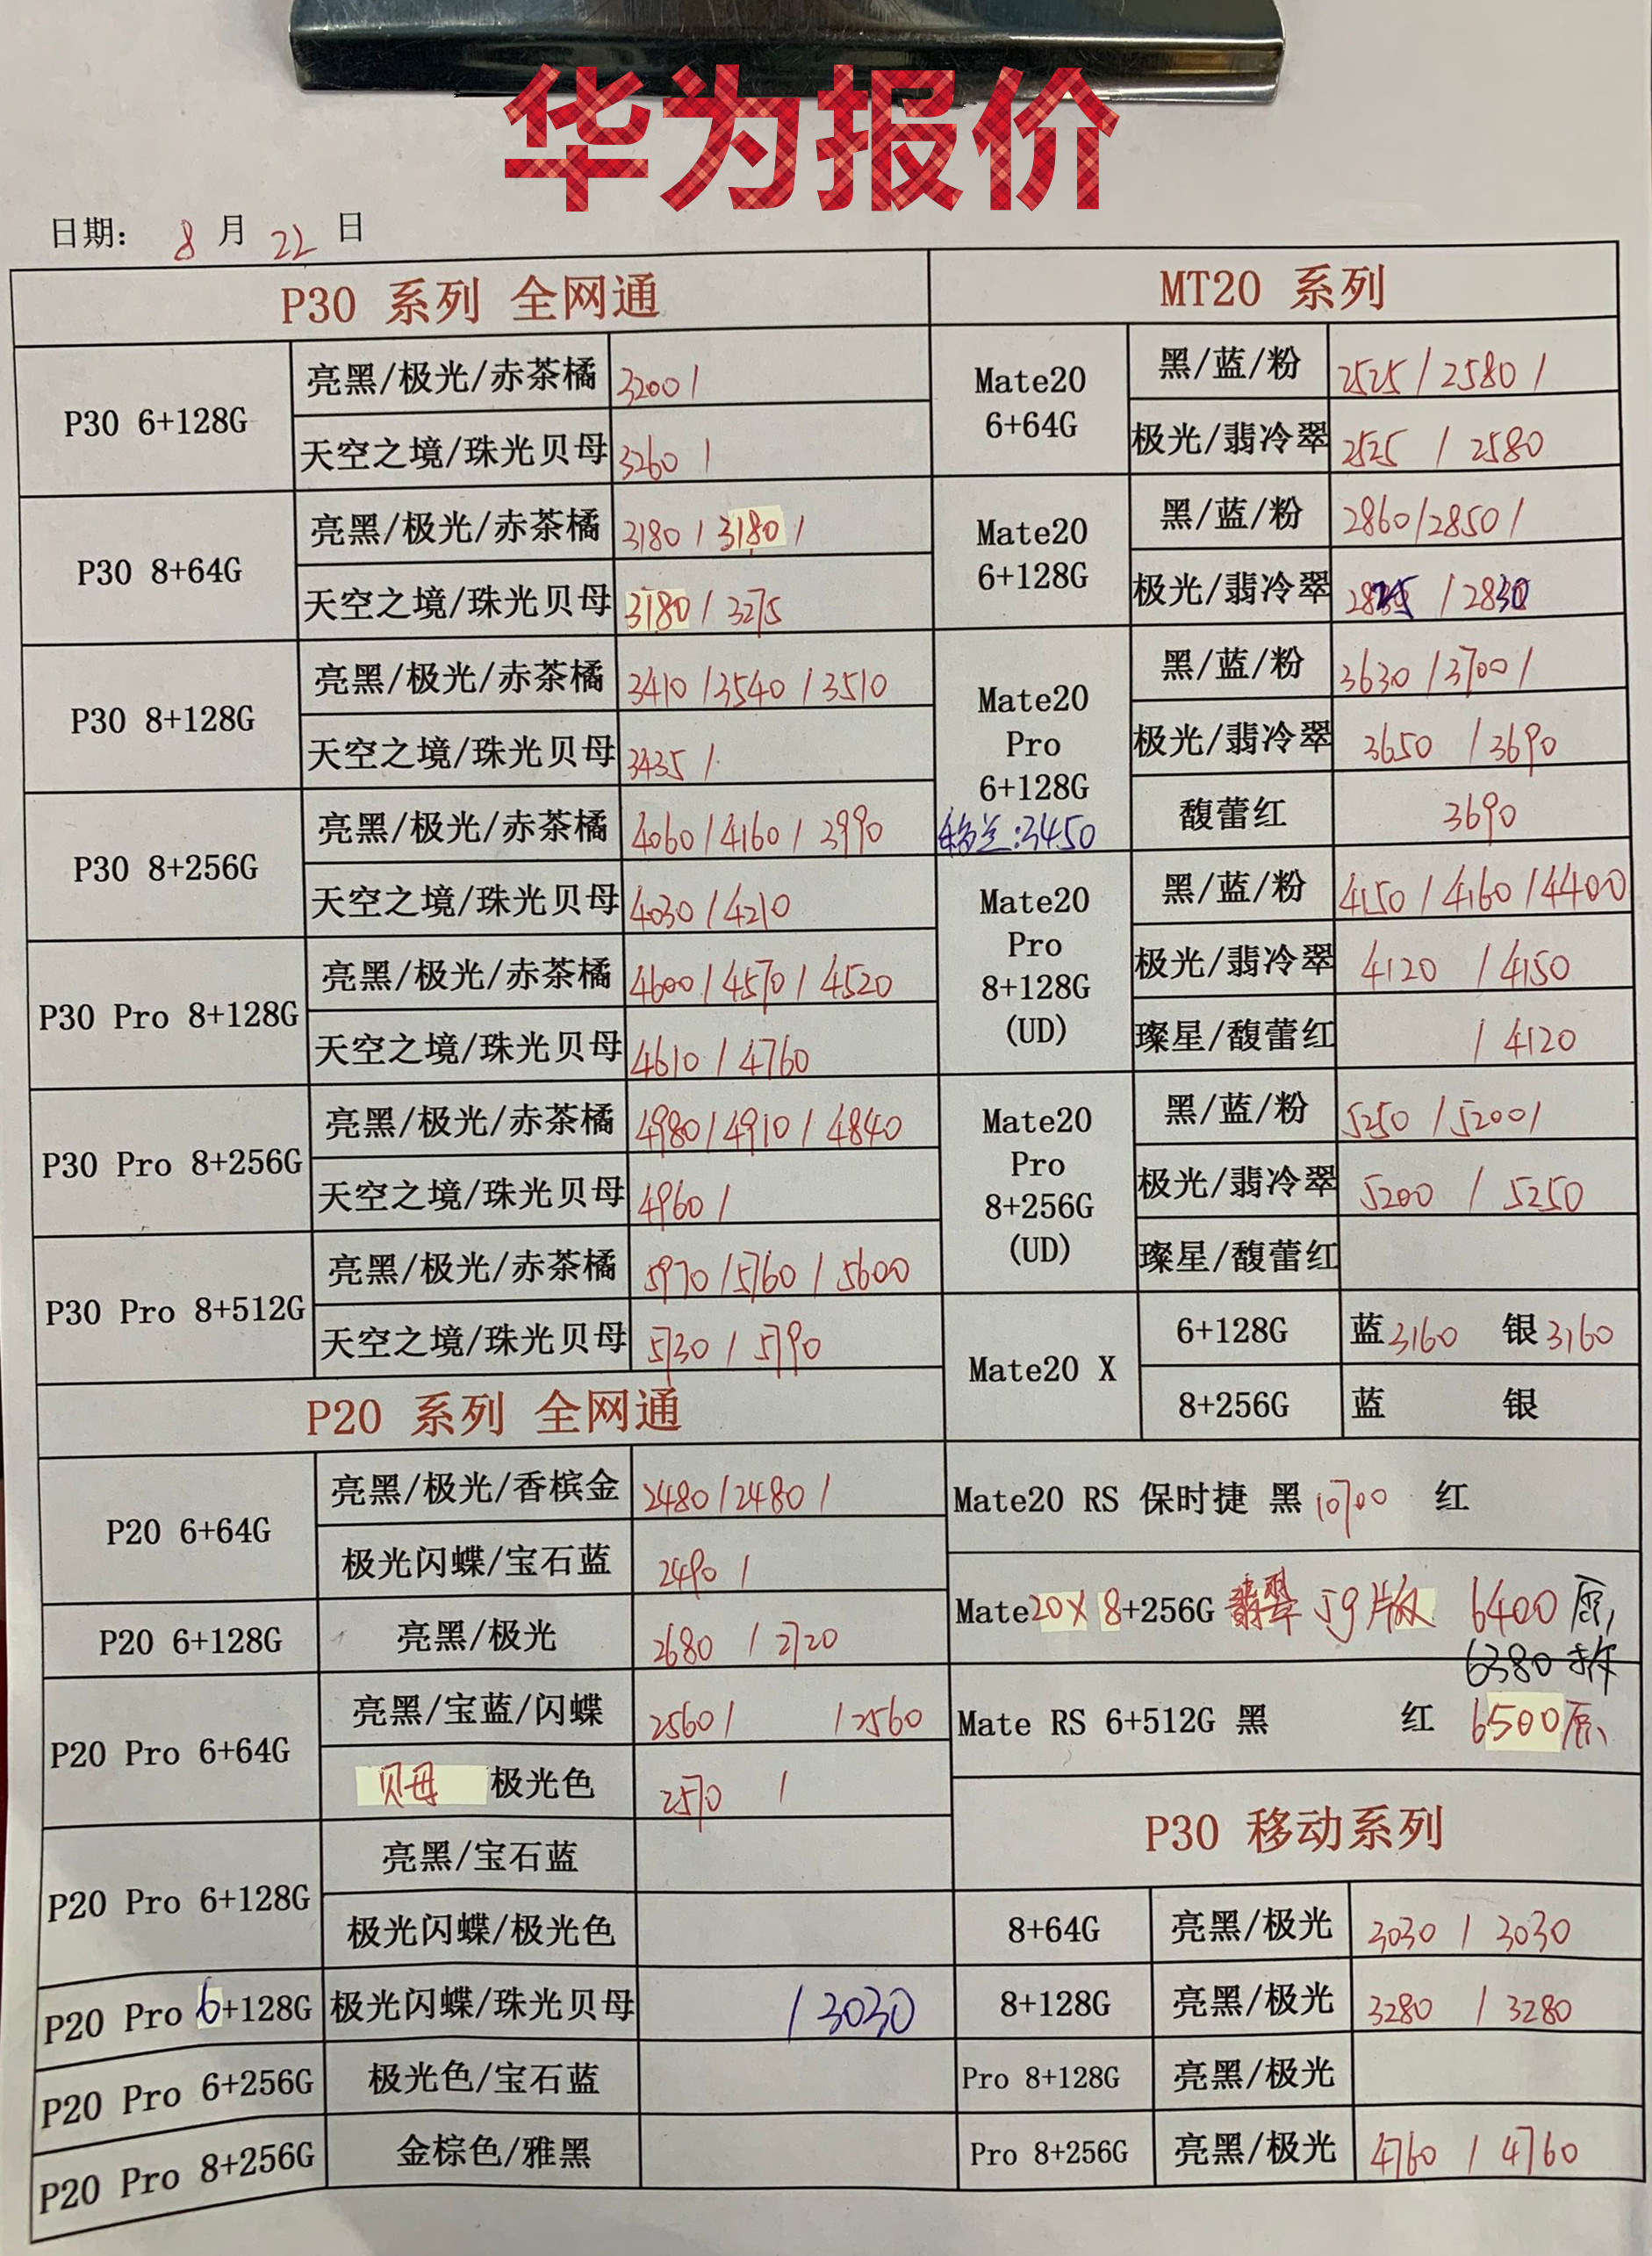 华为报价
日期: 8 月 22 日
P30 系列 全网通
P30 6+128G
亮黑/极光/赤茶橘 3200 /
天空之境/珠光贝母 3260 /
P30 8+64G
亮黑/极光/赤茶橘 3180 / 3180 /
天空之境/珠光贝母 3180 / 3275
P30 8+128G
亮黑/极光/赤茶橘 3410 / 3540 / 3510
天空之境/珠光贝母 3435 /
P30 8+256G
亮黑/极光/赤茶橘 4060 / 4160 / 3990
天空之境/珠光贝母 4030 / 4210
P30 Pro 8+128G
亮黑/极光/赤茶橘 4600 / 4570 / 4520
天空之境/珠光贝母 4610 / 4760
P30 Pro 8+256G
亮黑/极光/赤茶橘 4980 / 4910 / 4840
天空之境/珠光贝母 4960 /
P30 Pro 8+512G
亮黑/极光/赤茶橘 5970 / 5760 / 5600
天空之境/珠光贝母 5730 / 5790
P20 系列 全网通
P20 6+64G
亮黑/极光/香槟金 2480 / 2480 /
极光闪蝶/宝石蓝 2490 /
P20 6+128G
亮黑/极光 2680 / 2720
P20 Pro 6+64G
亮黑/宝蓝/闪蝶 2560 / / 2560
贝母 极光色 2570 /
P20 Pro 6+128G
亮黑/宝石蓝
极光闪蝶/极光色
P20 Pro 6+128G
极光闪蝶/珠光贝母 / 3030
P20 Pro 6+256G
极光色/宝石蓝
P20 Pro 8+256G
金棕色/雅黑
MT20 系列
Mate20
6+64G
黑/蓝/粉 2525 / 2580 /
极光/翡冷翠 2525 / 2580
Mate20
6+128G
黑/蓝/粉 2860 / 2850 /
极光/翡冷翠 2825 / 2830
Mate20
Pro
6+128G
:3450
黑/蓝/粉 3630 / 3700 /
极光/翡冷翠 3650 / 3690
馥蕾红 3690
Mate20
Pro
8+128G
(UD)
黑/蓝/粉 4150 / 4160 / 4400
极光/翡冷翠 4120 / 4150
璨星/馥蕾红 / 4120
Mate20
Pro
8+256G
(UD)
黑/蓝/粉 5250 / 5200 /
极光/翡冷翠 5200 / 5250
璨星/馥蕾红
Mate20 X
6+128G 蓝 3160 银 3160
8+256G 蓝 银
Mate20 RS 保时捷 黑 10700 红
Mate20X 8+256G 翡翠 5g版 6400原
6380拆
Mate RS 6+512G 黑 红 6500原
P30 移动系列
8+64G 亮黑/极光 3030 / 3030
8+128G 亮黑/极光 3280 / 3280
Pro 8+128G 亮黑/极光
Pro 8+256G 亮黑/极光 4760 / 4760